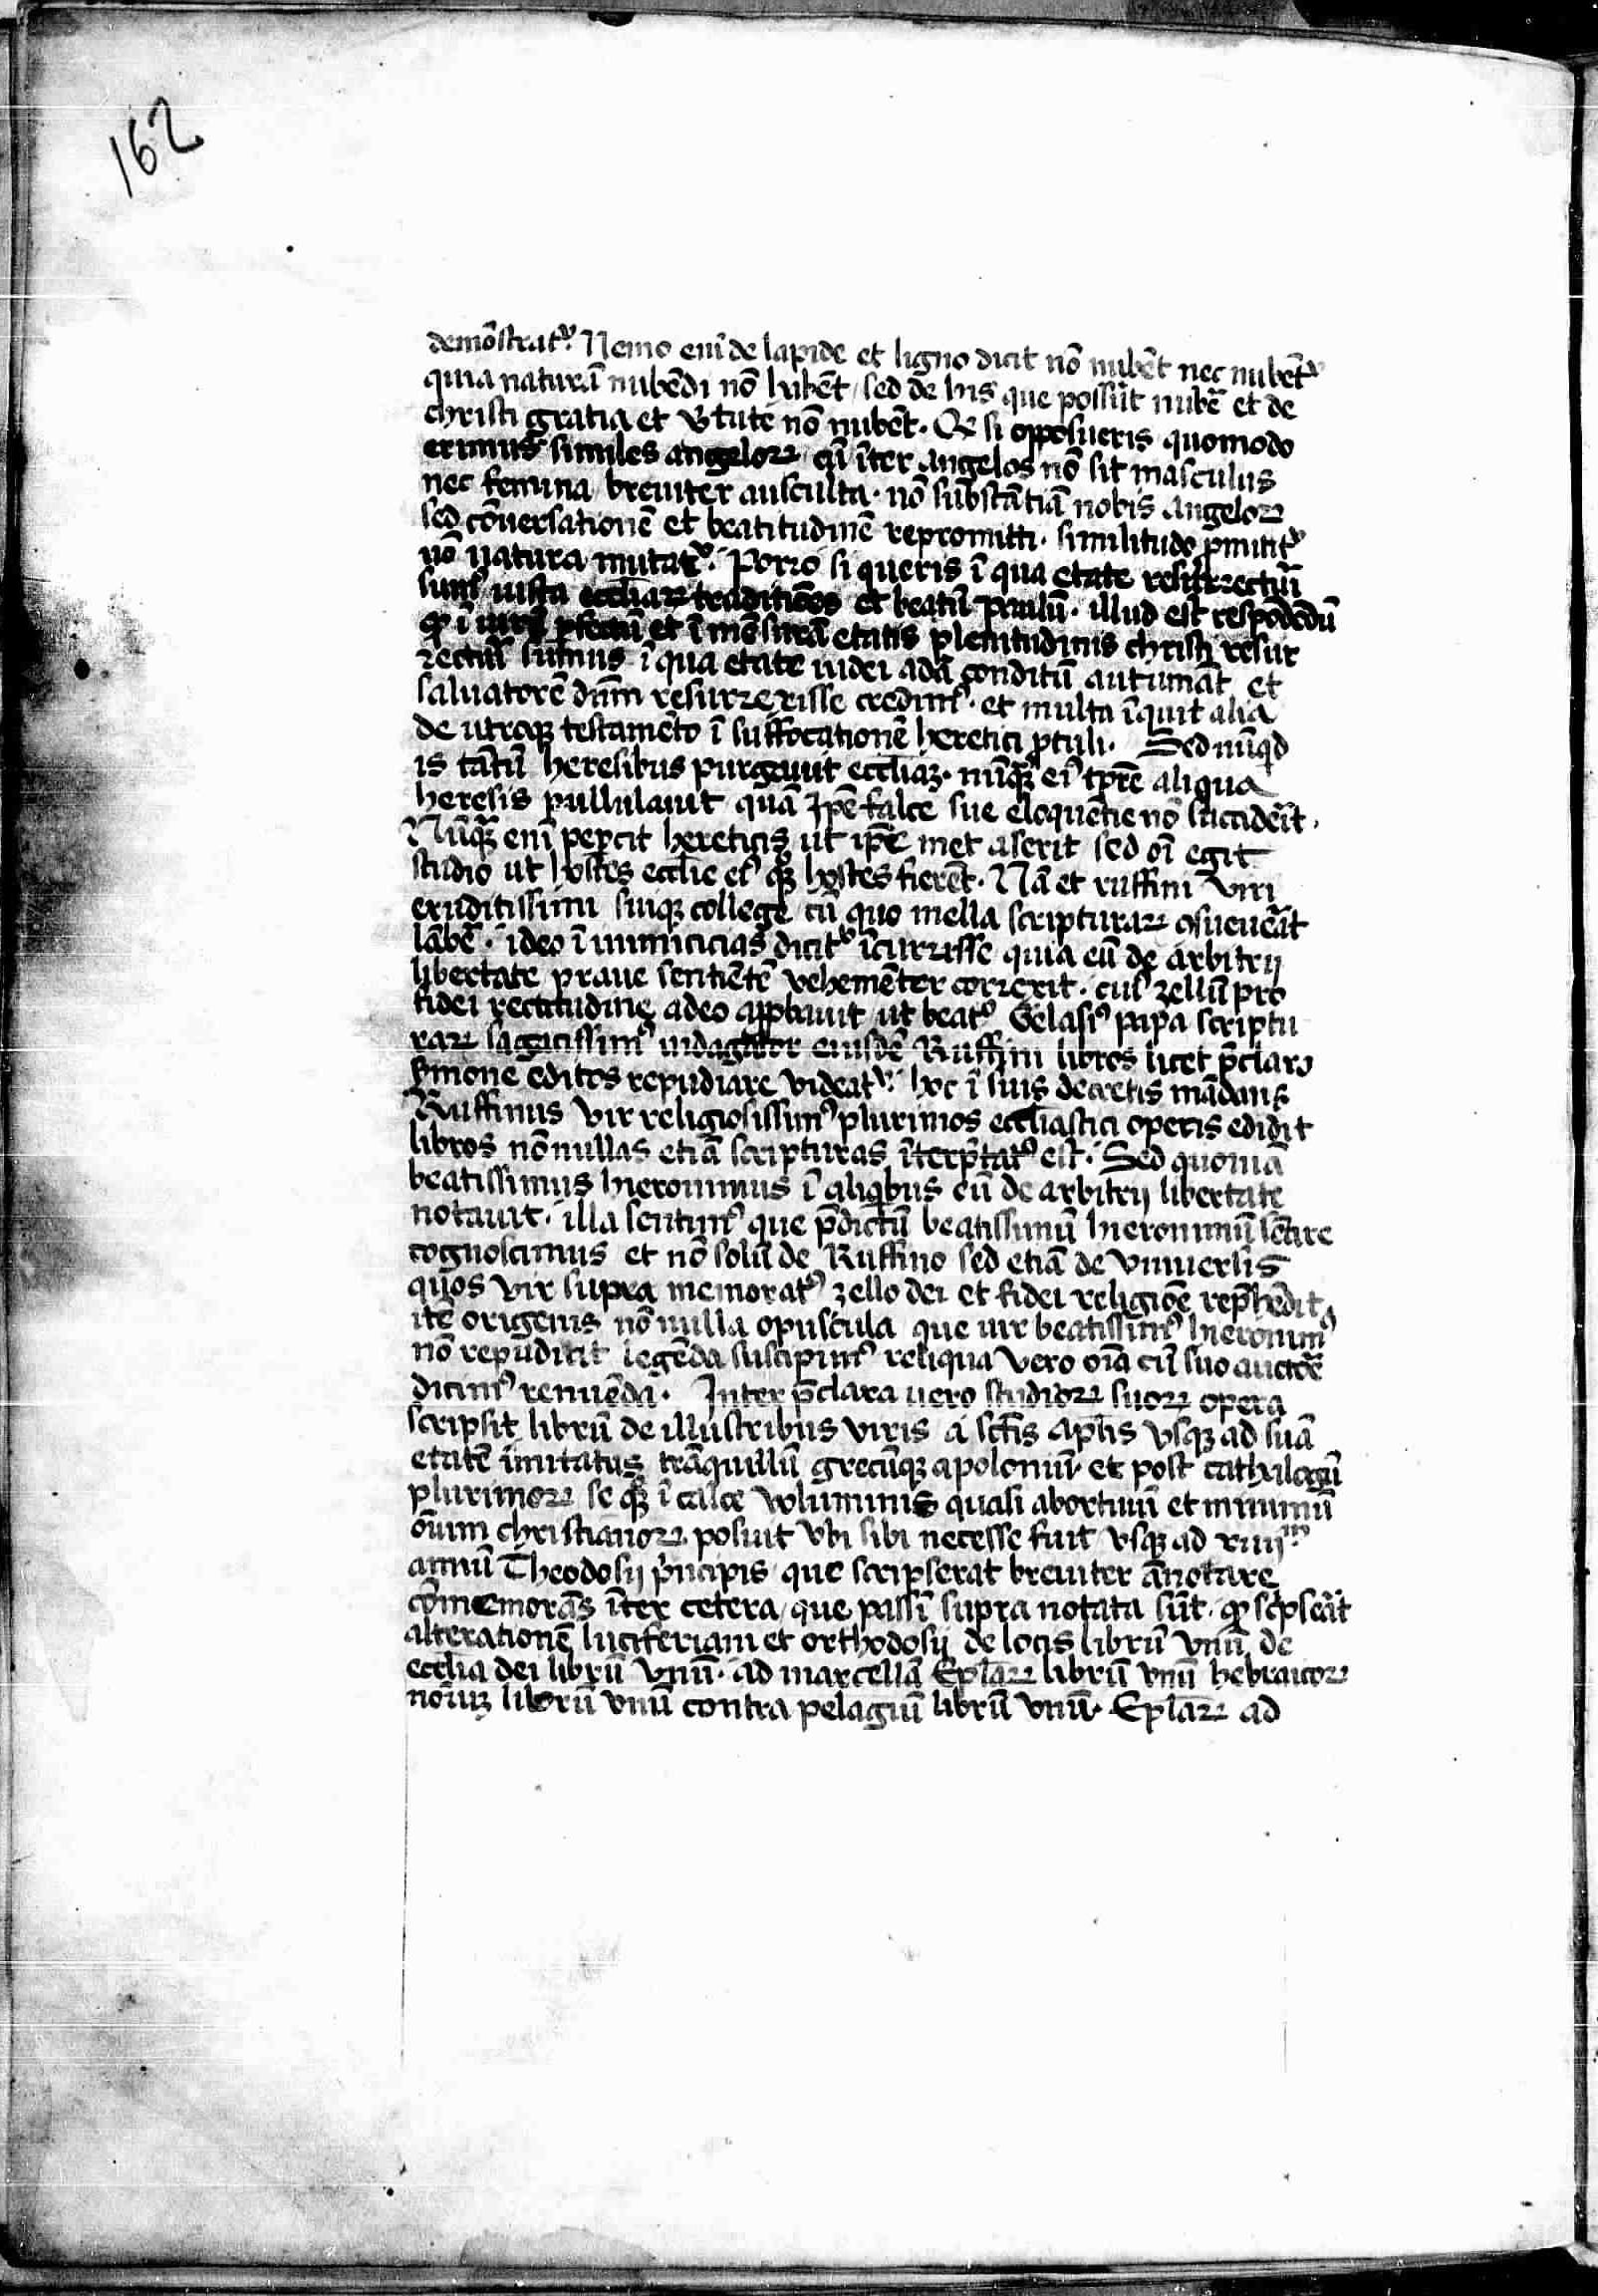 162
demõstratᷣ. Nemo eni᷃ de lapide et ligno dicit nõ nubẽt nec nubẽtᷣ
quia naturã nubẽdi nõ hñbẽt / sed de his que possũt nub̃e et de
christi gratia et v̾tute nõ nubẽt. Qᷓ si opposueris quomodo
erimus similes angeloꝝ cũ ĩter angelos nõ sit masculus
nec femina breuiter ausculta. nõ substãtiã nobis angeloꝝ
sed cõuersationẽ et beatitudinẽ repromitti. similitudo ꝓmititᷣ
nõ natura mutatᷣ. Porro si queris ĩ qua etate resurrecturi
sumꝰ iusta eccl̃iaꝝ traditiões et beatũ paulũ. illud est respõdẽdũ
ꝙ ĩ uirũ ꝑfectũ et ĩ mẽsurã etatis plenitudinis christi resur
recturi sumus ĩ qua etate iudei adã conditũ autumãt et
saluatorẽ dñm resurrexisse credimꝰ. et multa ĩquit alia
de utroqꝫ testamẽto ĩ suffocationẽ heretici ꝓtuli. Sed nũqd
is tãtũ heresibus purgauit eccl̃iaꝫ. nũqꝫ eiꝰ tp̃re aliqua
heresis pullulauit quã ip̃e falce sue eloquẽtie nõ succider̃it.
Nũqꝫ eni᷃ peꝑcit hereticis ut ip̃e met aserit sed oĩ egit
studio ut hostes eccl̃ie eiꝰ qꝫ hostes fierẽt. Nã et ruffini viri
eruditissimi suiqꝫ college cũ quo mella scripturaꝝ ꝯsueuer̃at
lãbẽ. ideo ĩ inimicicias dicitᷣ ĩcurrisse quia eũ de arbitrij
libertate praue sentiẽtẽ vehemẽter correxit. cuiꝰ zellũ pro
fidei rectitudine adeo aꝓbauit ut beatꝰ Gelasiꝰ papa scriptu
raꝝ sagacissimꝰ indagator eiusdẽ Ruffini libros licet p̃claro
s̃mone editos repudiare videatᷣ. hoc ĩ suis decretis mãdans
Ruffinus vir religiosissimꝰ plurimos eccl̃iastici operis edidit
libros nõnullas etiã scripturas ĩterp̃tatꝰ est. Sed quoniã
beatissimus hieronimus ĩ aliqbus eũ de arbitrij libertate
notauit. illa sentimꝰ que p̃dictũ beatissimũ hieronimũ sẽtire
cognoscimus et nõ solũ de Ruffino sed etiã de vniuersis
quos vir supra memoratꝰ zello dei et fidei religiõe rep̃hẽdit.
itẽ origenis nõnulla opuscula que uir beatissimꝰ hieronimꝰ
nõ repudiat legẽda suscipimꝰ reliqua vero oĩa cũ suo auctor̃e
dicimꝰ renuẽda. Inter p̃clara uero studioꝝ suoꝝ opera
scripsit librũ de illustribus viris a sc̃tis apl̃is vsqꝫ ad suã
etatẽ imitatus trãquillũ grecũqꝫ apoloniũ. et post cathalogũ
plurimoꝝ se qꝫ ĩ calce voluminis quasi abortiuũ et minimũ
oĩum christianoꝝ posuit vbi sibi necesse fuit vsqꝫ ad xiiijᵐ.
annũ Theodosij p̃ncipis que scripserat breuiter ãnotare
cõmemorãs ĩter cetera / que passĩ supra notata sũt. ꝙ sc̃pser̃at
alterationẽ luciferiani et orthodosij de locis librũ vnũ de
eccl̃ia dei librũ vnũ. ad marcellã Epl̃aꝝ librũ vnũ hebraicoꝝ
noĩuꝫ librũ vnũ contra pelagiũ librũ vnũ. Epl̃aꝝ ad